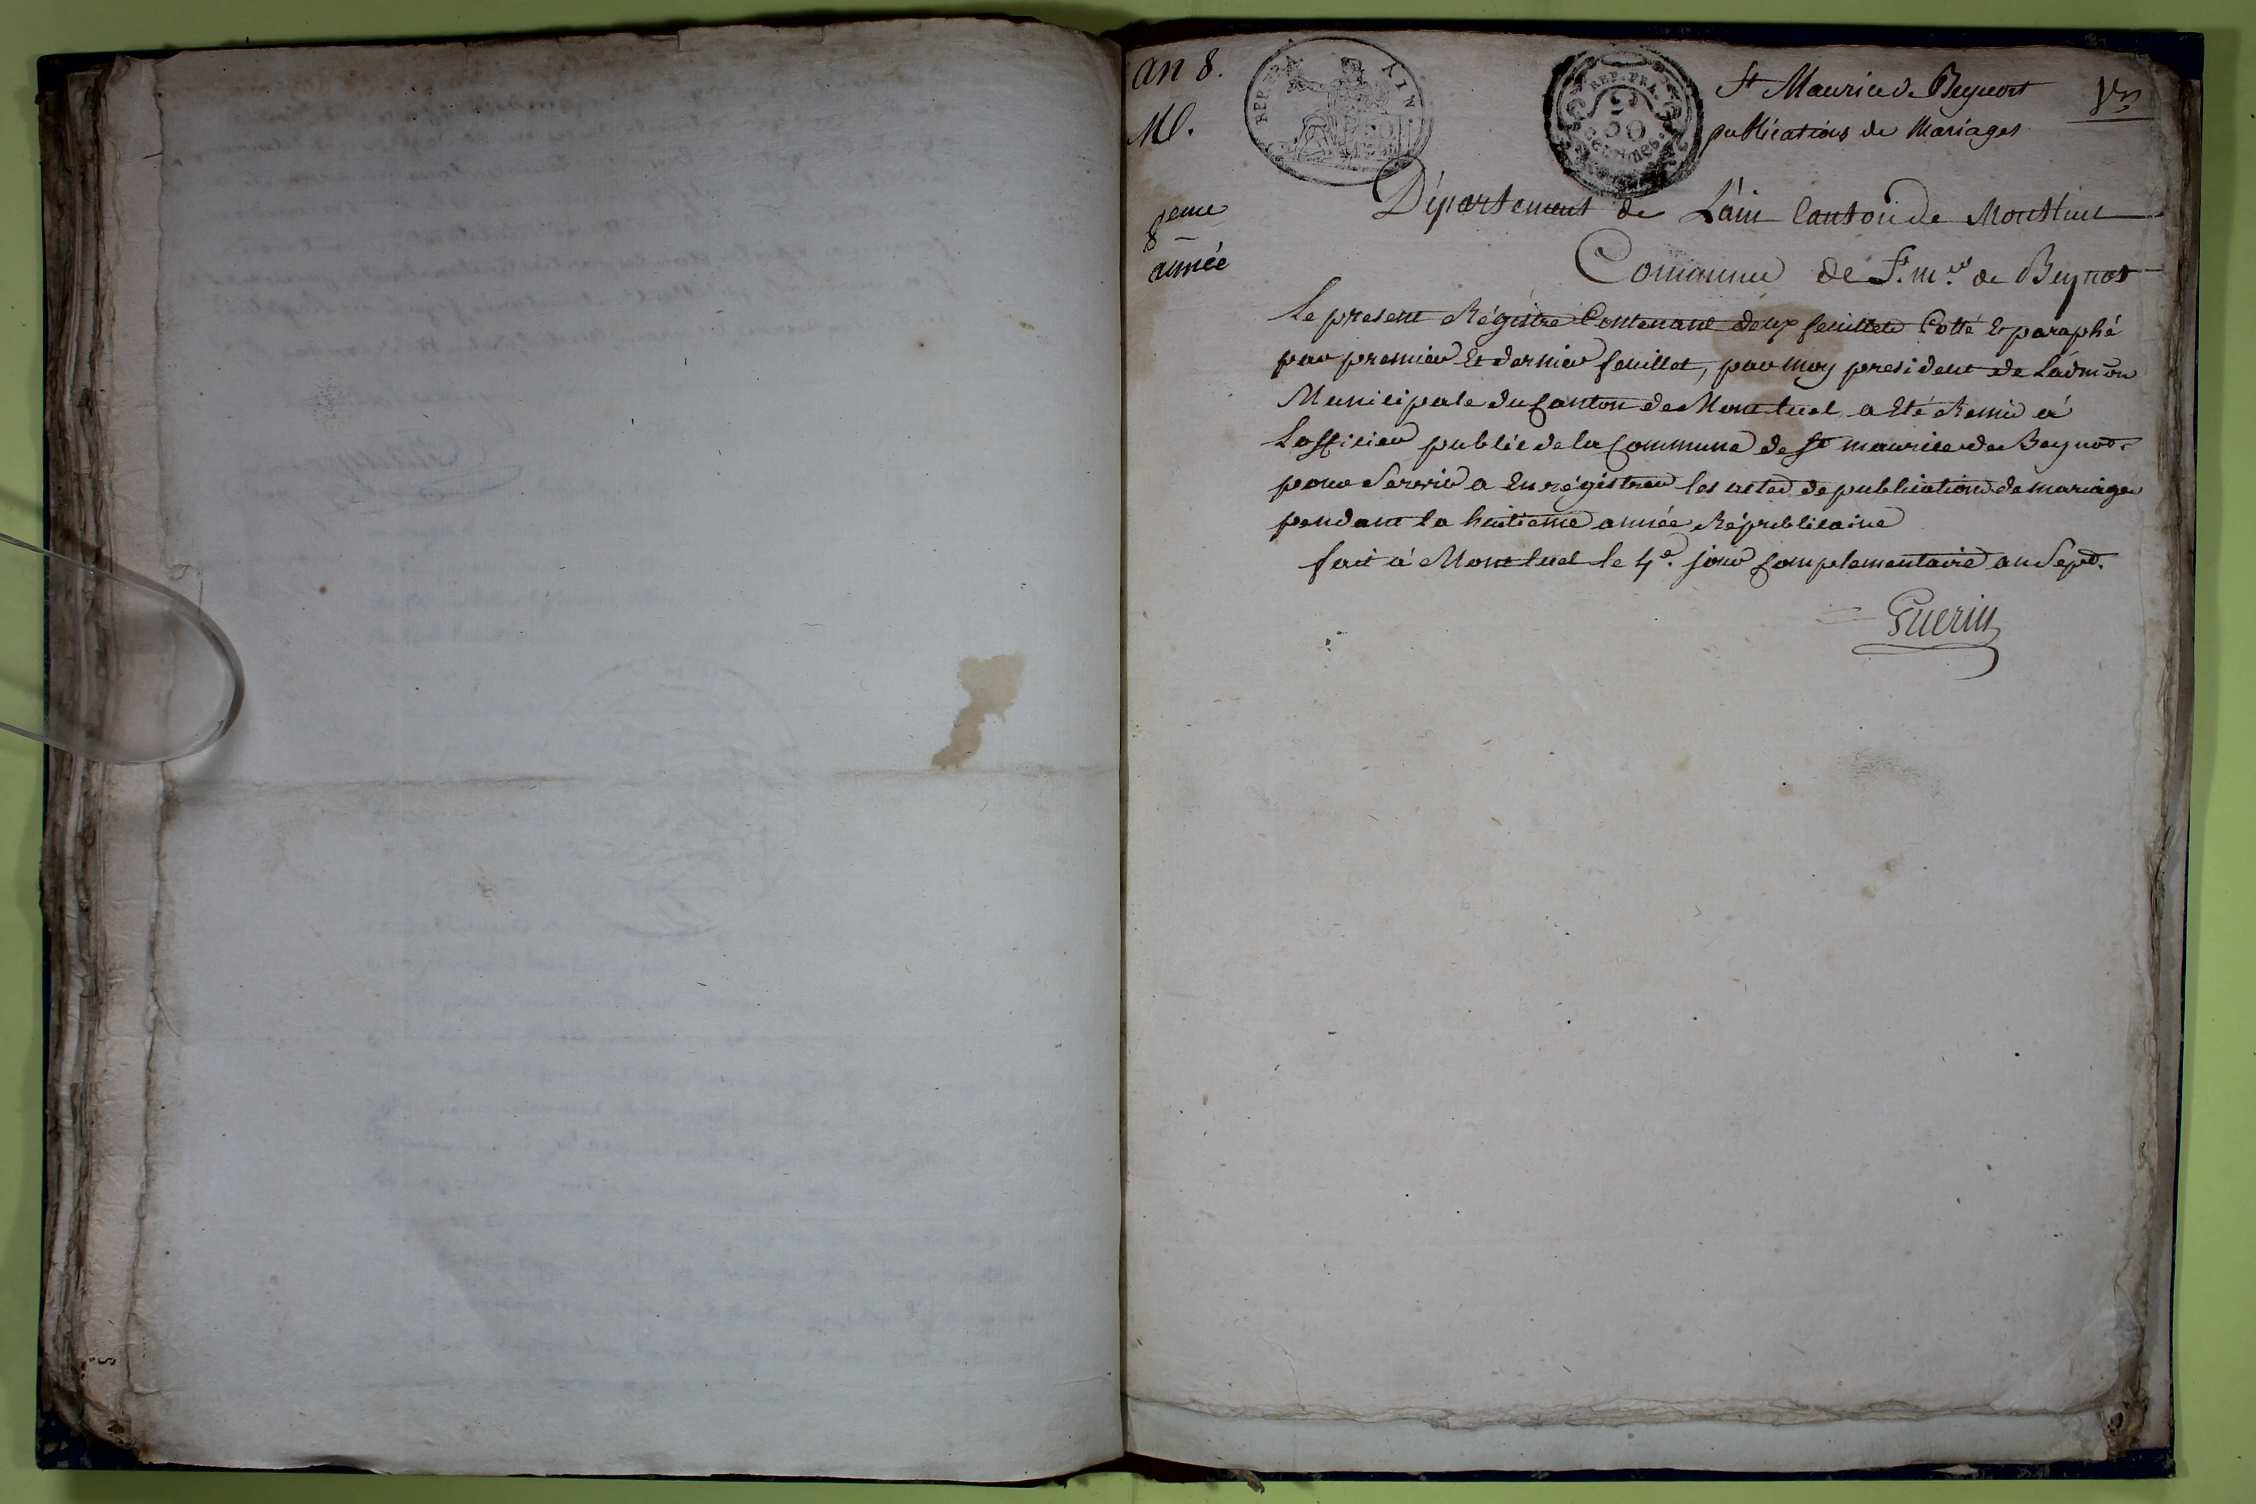 an 8.
M.
REP. FRA.
AIN
REP. FRA.
50
centimes.
St Maurice de Beynost
publications de Mariages
8eme
année
Département de L'ain Canton de Montluel
Commune de St. mce. de Beynost
Le present Régistre Contenant deux feuillets Cotté Et paraphé
par premier Et dernier feuillet, par moy president de L'admon
Municipale du Canton de Montluel a Eté Remis à
L'officier public de la Commune de St maurice de Beynost
pour Servir a Enrégistrer les actes de publications de mariage
pendant la huitieme année Républicaine
fait à Montluel le 4e. jour Complementaire an Sept.
Guerin